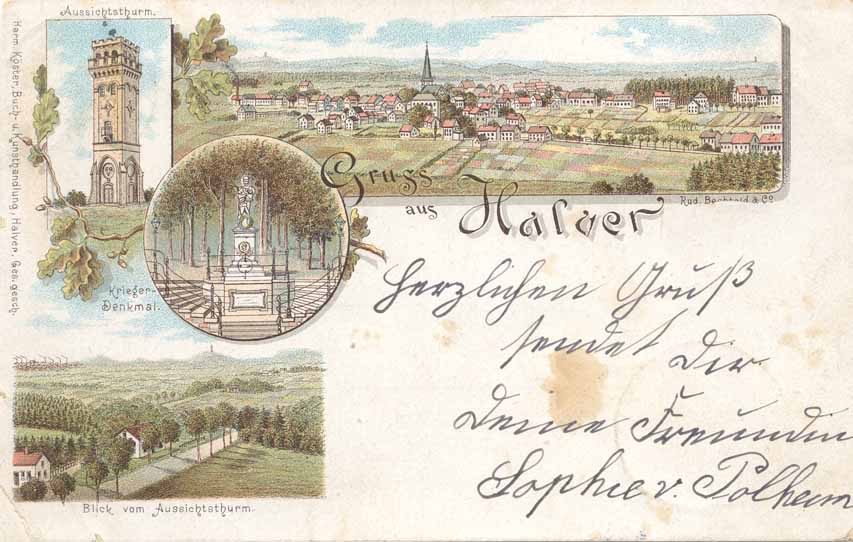 Aussichtsthurm.
Harm. Köster, Buch- u. Kunsthandlung, Halver. Ges. gesch.
Gruss
aus Halver
Rud. Bechtold & Co
Krieger-
Denkmal.
Herzlichen Gruß
sendet Dir
Deine Freundin
Sophie v. Polheim
Blick vom Aussichtsthurm.